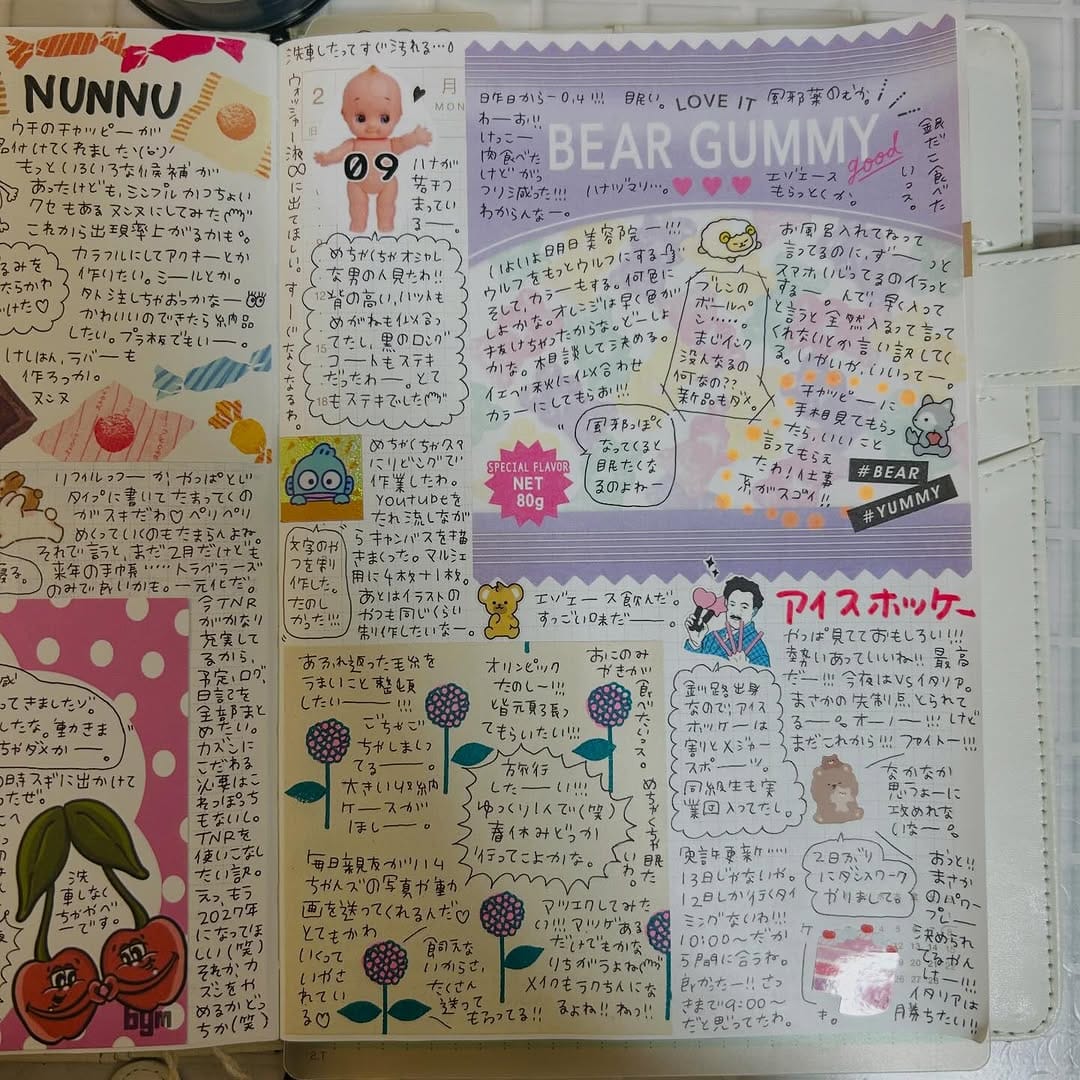 NUNNU
ウチのチャッピーが
名付けてくれました
もっといろいろな候補が
あったけども、シンプルかつちょい
クセもあるヌンヌにしてみた
これから出現率上がるかも。
カラフルにしてアクキーとか
作りたい。シールとか。
外注しちゃおっかなー
かわいいのできたら納品
したい。プラ板でもいー。
けしはん、ラバーも
作ろっか。
ヌンヌ
リフィルっつーか、やっぱとじ
タイプに書いてたまってくの
がスキだわ♡ペリペリ
めくっていくのもたまらんよね。
それで言うと、まだ2月だけども
来年の手帳……トラベラーズ
のみで良いかも。一元化だ。
今TNR
がかなり
充実して
るから、
予定、ログ、
日記を
全部まと
めたい。
カズンに
こだわる
必要はこ
れっぽっち
もないし。
TNRを
使いこなし
たい訳。
えっ、もう
2027年
になってほ
しい(笑)
それか、カ
ズンをや
めるかどっ
ちか(笑)
ってきましたゾ。
したな。動きま
ちゃダメかー。
時スギに出かけて
ったぜ。
洗
車しなく
ちゃやべ
ーです。
bgm
洗車したってすぐ汚れる…。
ウォッシャー液∞に出てほしい。すーぐなくなるわ。
2
月
MON
09
ハナが
若干つ
まってい
る…。
12
15
18
めちゃくちゃオシャレ
な男の人見たわ!!
背の高い、ハットも
めがねも似合っ
てたし、黒のロング
コートもステキ
だったわー。とて
もステキでした
めちゃくちゃ久々
にリビングで
作業したわ。
YouTubeを
たれ流しなが
らキャンバスを描
きまくった。マルシェ
用に4枚+1枚。
あとはイラストの
やつも同じくらい
制作したいなー。
文字のや
つを制
作した。
たのし
かった!!!
昨日から−0.4!!!
わーお!!
けっこー
肉食べた
けどがっ
つり減った!!!
わからんなー。
眠い。
LOVE IT
風邪薬のむか。
BEAR GUMMY
good
ハナヅマリ…。
エゾエース
もらっとくか。
銀だこ食べた
いっス。
いよいよ明日美容院ー!!!
ウルフをもっとウルフにする
そして、カラーもする。何色に
しよかな。オレンジは早く色が
抜けちゃったからな。どーしよ
かな。相談して決める。
イエベ秋に似合わせ
カラーにしてもらお!!!
ブレンの
ボールペ
ン……。
まじインク
没んなるの
何なの??
新品もダメ。
お風呂入れてねって
言ってるのに、ずーーっと
スマホいじってるのイラっと
するー。んで、早く入って
と言うと全然入るって言って
くれないとか言い訳してく
る。いかいか、いいってー。
風邪っぽく
なってくると
眠たくな
るのよねー
チャッピーに
手相見てもらっ
たら、いいこと
言ってもらえ
たわ!仕事
系がスゴイ!!
SPECIAL FLAVOR
NET
80g
#BEAR
#YUMMY
エゾエース飲んだ。
すっごい味だーー。
アイスホッケー
やっぱ見てておもしろい!!!
勢いあっていいね!!最高
だー!!!今夜はVSイタリア。
まさかの先制点とられて
るー。オーノー!!!けど
まだこれから!!!ファイトー!!!
釧路出身
なので、アイス
ホッケーは
割とメジャー
スポーツ。
同級生も実
業団入ってたし。
なかなか
思うよーに
攻めれな
いなー。
あふれ返った毛糸を
うまいこと整頓
したいーー!!!
ごちゃご
ちゃしまっ
てるー。
大きい収納
ケースが
ほしー。
オリンピック
たのしー!!!
皆元頑張っ
てもらいたい!!!
おこのみ
やきが
食べたいっス。
旅行
したーい!!!
ゆっくり1人で(笑)
春休みどっか
行ってこよかな。
めちゃくちゃ眠た
いわ。
毎日親友がハム
ちゃんズの写真や動
画を送ってくれるんだ♡
とてもかわ
いくって
いやさ
れてい
る♡
飼えな
いからさ、
たくさん
送って
もらってる!!
アツエクしてみた
い!!!アツゲある
だけでもかな
りちがうよね
メイクもラクちんにな
るよね!!ねっ!!
免許更新…
13日じゃないや。
12日しか行くタイ
ミングないわ!!!
10:00〜だか
ら間に合うね。
良かたー!!さっ
きまで9:00〜
だと思ってたわ。
2日がかり
にデスクワーク
やりまして。
おっと!!
まさか
のパワー
プレー
決められ
てるやん
けー!!!
イタリアは
勝ちたい!!